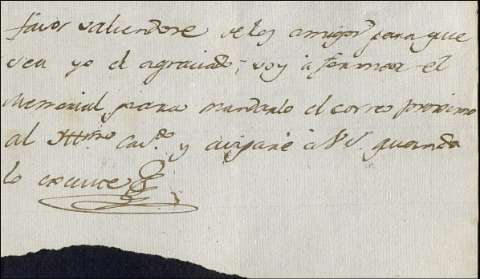 favor valiendose de los amigos para que
sea yo el agraciado; voy à formar el
Memorial para mandarlo el correo proximo
al Yll.mo Cav.do y avisaré à VS. quando
lo execute